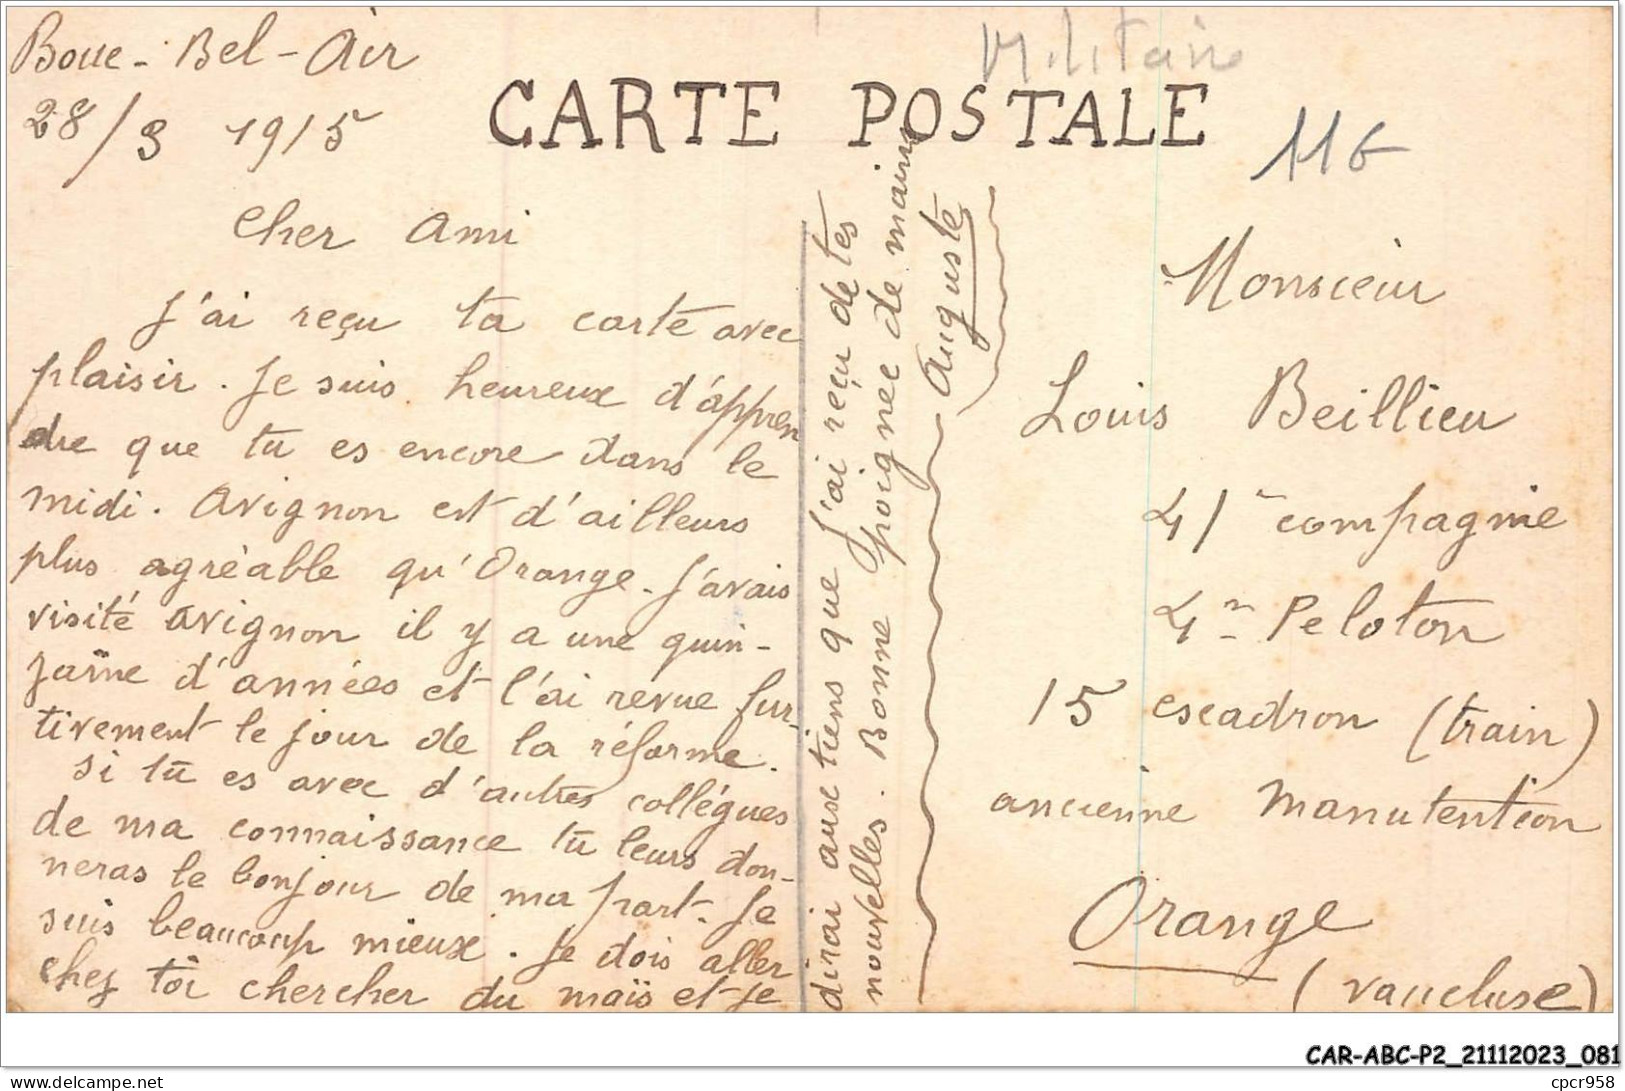 Bouc-Bel-Air
28/9 1915
Militaire
CARTE POSTALE
11 F
Cher Ami
J'ai reçu ta carte avec
plaisir. Je suis heureux d'appren
dre que tu es encore dans le
midi. Avignon est d'ailleurs
plus agréable qu'Orange. J'avais
visité Avignon il y a une quin-
zaine d'années et l'ai revue fur-
tivement le jour de la réforme.
Si tu es avec d'autres collégues
de ma connaissance tu leurs don-
neras le bonjour de ma part. Je
suis beaucoup mieux. Je dois aller
chez toi chercher du maïs et je
dirai aux tiens que j'ai reçu de tes
nouvelles. Bonne poignee de mains
Auguste
Monsieur
Louis Beillieu
41e compagnie
4e Peloton
15 escadron (train)
ancienne manutention
Orange
(Vaucluse)
CAR-ABC-P2_21112023_081
https://www.delcampe.net
cpcr958